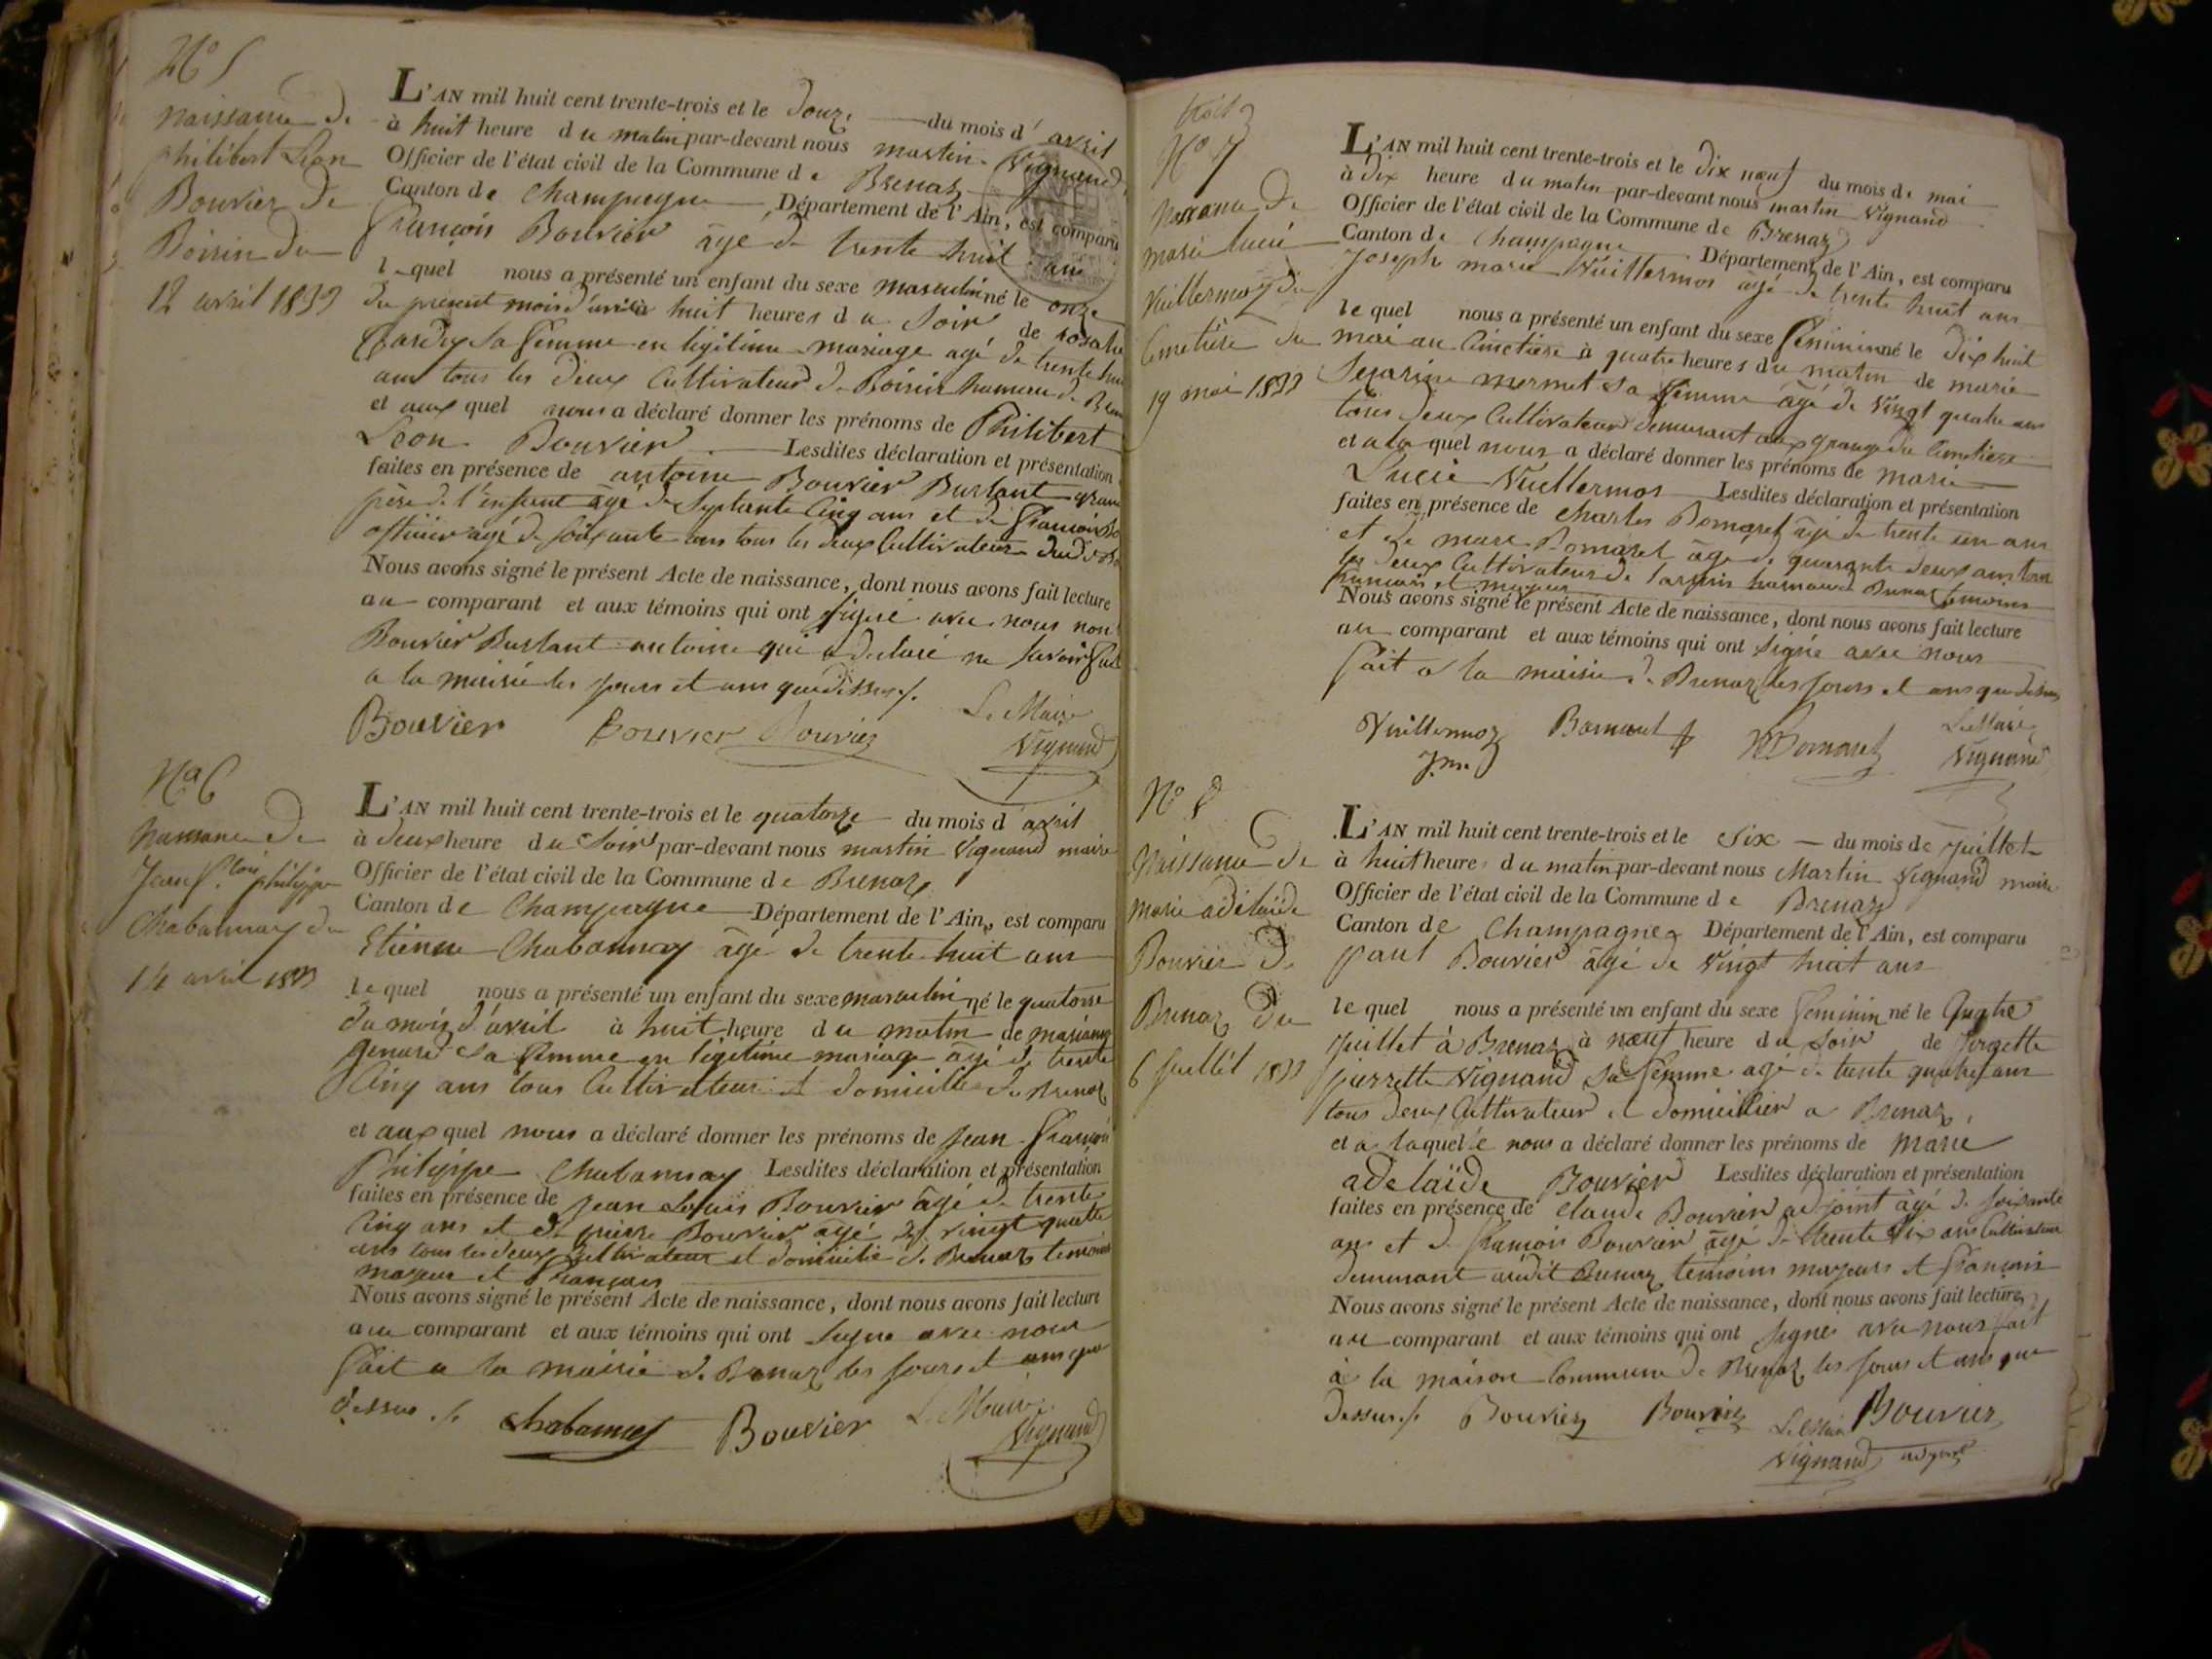 N° 5
naissance de
philibert Léon
Bouvier de
Boirin du
12 avril 1833
L'AN mil huit cent trente-trois et le douze du mois d'avril
à huit heure du matin par-devant nous martin Vignand
Officier de l'état civil de la Commune de Brenaz
Canton de Champagne Département de l'Ain, est comparu
François Bouvier âgé de trente huit ans
lequel nous a présenté un enfant du sexe masculin né le onze
du present mois d'avril à huit heures du soir de
sa femme en légitime mariage agé de trente
ans tous les deux Cultivateurs de Boirin hameau de
et aux quel nous a déclaré donner les prénoms de Philibert
Léon Bouvier Lesdites déclaration et présentation
faites en présence de antoine Bouvier Burlant grand
père de l'enfant âgé de Septante Cinq ans et de François
agé de soixante ans tous les deux Cultivateurs
Nous avons signé le présent Acte de naissance, dont nous avons fait lecture
au comparant et aux témoins qui ont signé avec nous non
Bouvier Burlant antoine qui a declaré ne savoir fait
a la mairie les jours et ans que dessus
Bouvier Bouvier Bouvier Le Maire
Vignand
N° 6
naissance de
Jean f.çois philippe
Chabannay du
14 avril 1833
L'AN mil huit cent trente-trois et le quatorze du mois d'avril
à deux heure du Soir par-devant nous martin Vignand maire
Officier de l'état civil de la Commune de Brenaz
Canton de Champagne Département de l'Ain, est comparu
Etienne Chabannay âgé de trente huit ans
le quel nous a présenté un enfant du sexe masculin né le quatorse
du mois d'avril à huit heure du matin de
sa femme en légitime mariage âgé de trente
Cinq ans tous Cultivateur et domicilie de Brenaz
et aux quel nous a déclaré donner les prénoms de Jean François
Philippe Chabannay Lesdites déclaration et présentation
faites en présence de Jean Louis Bouvier âgé de trente
Cinq ans et de pierre Bouvier âgé de vingt quatre
ans tous les deux Cultivateur et domicilié de Brenaz temoins
majeur et Français
Nous avons signé le présent Acte de naissance, dont nous avons fait lecture
au comparant et aux témoins qui ont signe avec nous
fait a la mairie de Brenaz les jours et ans que
dessus Chabannay Bouvier Le Maire
Vignand
N° 7
Naissance de
marie lucie
Vuillermoz du
Cimetière du
19 mai 1833
L'AN mil huit cent trente-trois et le dix neuf du mois de mai
à dix heure du matin par-devant nous martin Vignand
Officier de l'état civil de la Commune de Brenaz
Canton de Champagne Département de l'Ain, est comparu
Joseph marie Vuillermos âgé de trente huit ans
le quel nous a présenté un enfant du sexe féminin né le dix huit
mai au Cimetière à quatre heures du matin de marie
mermet sa femme âgé de vingt quatre ans
tous deux Cultivateur demeurant aux grange du Cimetiere
et a la quel nous a déclaré donner les prénoms de Marie
Lucie Vuillermos Lesdites déclaration et présentation
faites en présence de Charles Bornaret âgé de trente un ans
et de marc Bornaret âgé de quarante deux ans tous
les deux Cultivateurs de hameau de Brenaz temoins
français et majeur
Nous avons signé le présent Acte de naissance, dont nous avons fait lecture
au comparant et aux témoins qui ont signé avec nous
fait a la mairie de Brenaz les jours et ans que dessus
Vuillermoz Bornaret Bornaret Le Maire
Jm Vignand
N° 8
Naissance de
marie adélaïde
Bouvier de
Brenaz du
6 Juillet 1833
L'AN mil huit cent trente-trois et le Six du mois de Juillet
à huit heure du matin par-devant nous Martin Vignand maire
Officier de l'état civil de la Commune de Brenaz
Canton de Champagne Département de l'Ain, est comparu
paul Bouvier âgé de vingt huit ans
le quel nous a présenté un enfant du sexe feminin né le Quatre
Juillet à Brenaz à neuf heure du soir de
pierrette Vignand sa femme agé de trente quatre ans
tous deux Cultivateur et domicilier a Brenaz
et a laquelle nous a déclaré donner les prénoms de Marie
adelaïde Bouvier Lesdites déclaration et présentation
faites en présence de Claude Bouvier adjoint âgé de soixante
ans et de François Bouvier âgé de trente Six ans Cultivateur
demeurant audit Brenaz temoins majeurs et français
Nous avons signé le présent Acte de naissance, dont nous avons fait lecture
au comparant et aux témoins qui ont signés avec nous fait
à la maison Commune de Brenaz les jours et ans que
dessus Bouvier Bouvier Le Maire Bouvier
Vignand adjoint